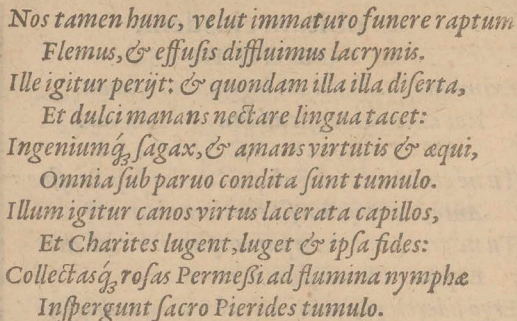 Nos tamen hunc, velut immaturo funere raptum
Flemus, & effuſis diffluimus lacrymis.
Ille igitur perijt: & quondam illa illa diſerta,
Et dulci manans nectare lingua tacet:
Ingeniumq́ꝫ ſagax, & amans virtutis & æqui,
Omnia ſub paruo condita ſunt tumulo.
Illum igitur canos virtus lacerata capillos,
Et Charites lugent, luget & ipſa fides:
Collectasq́ꝫ roſas Permeſſi ad flumina nymphæ
Inſpergunt ſacro Pierides tumulo.